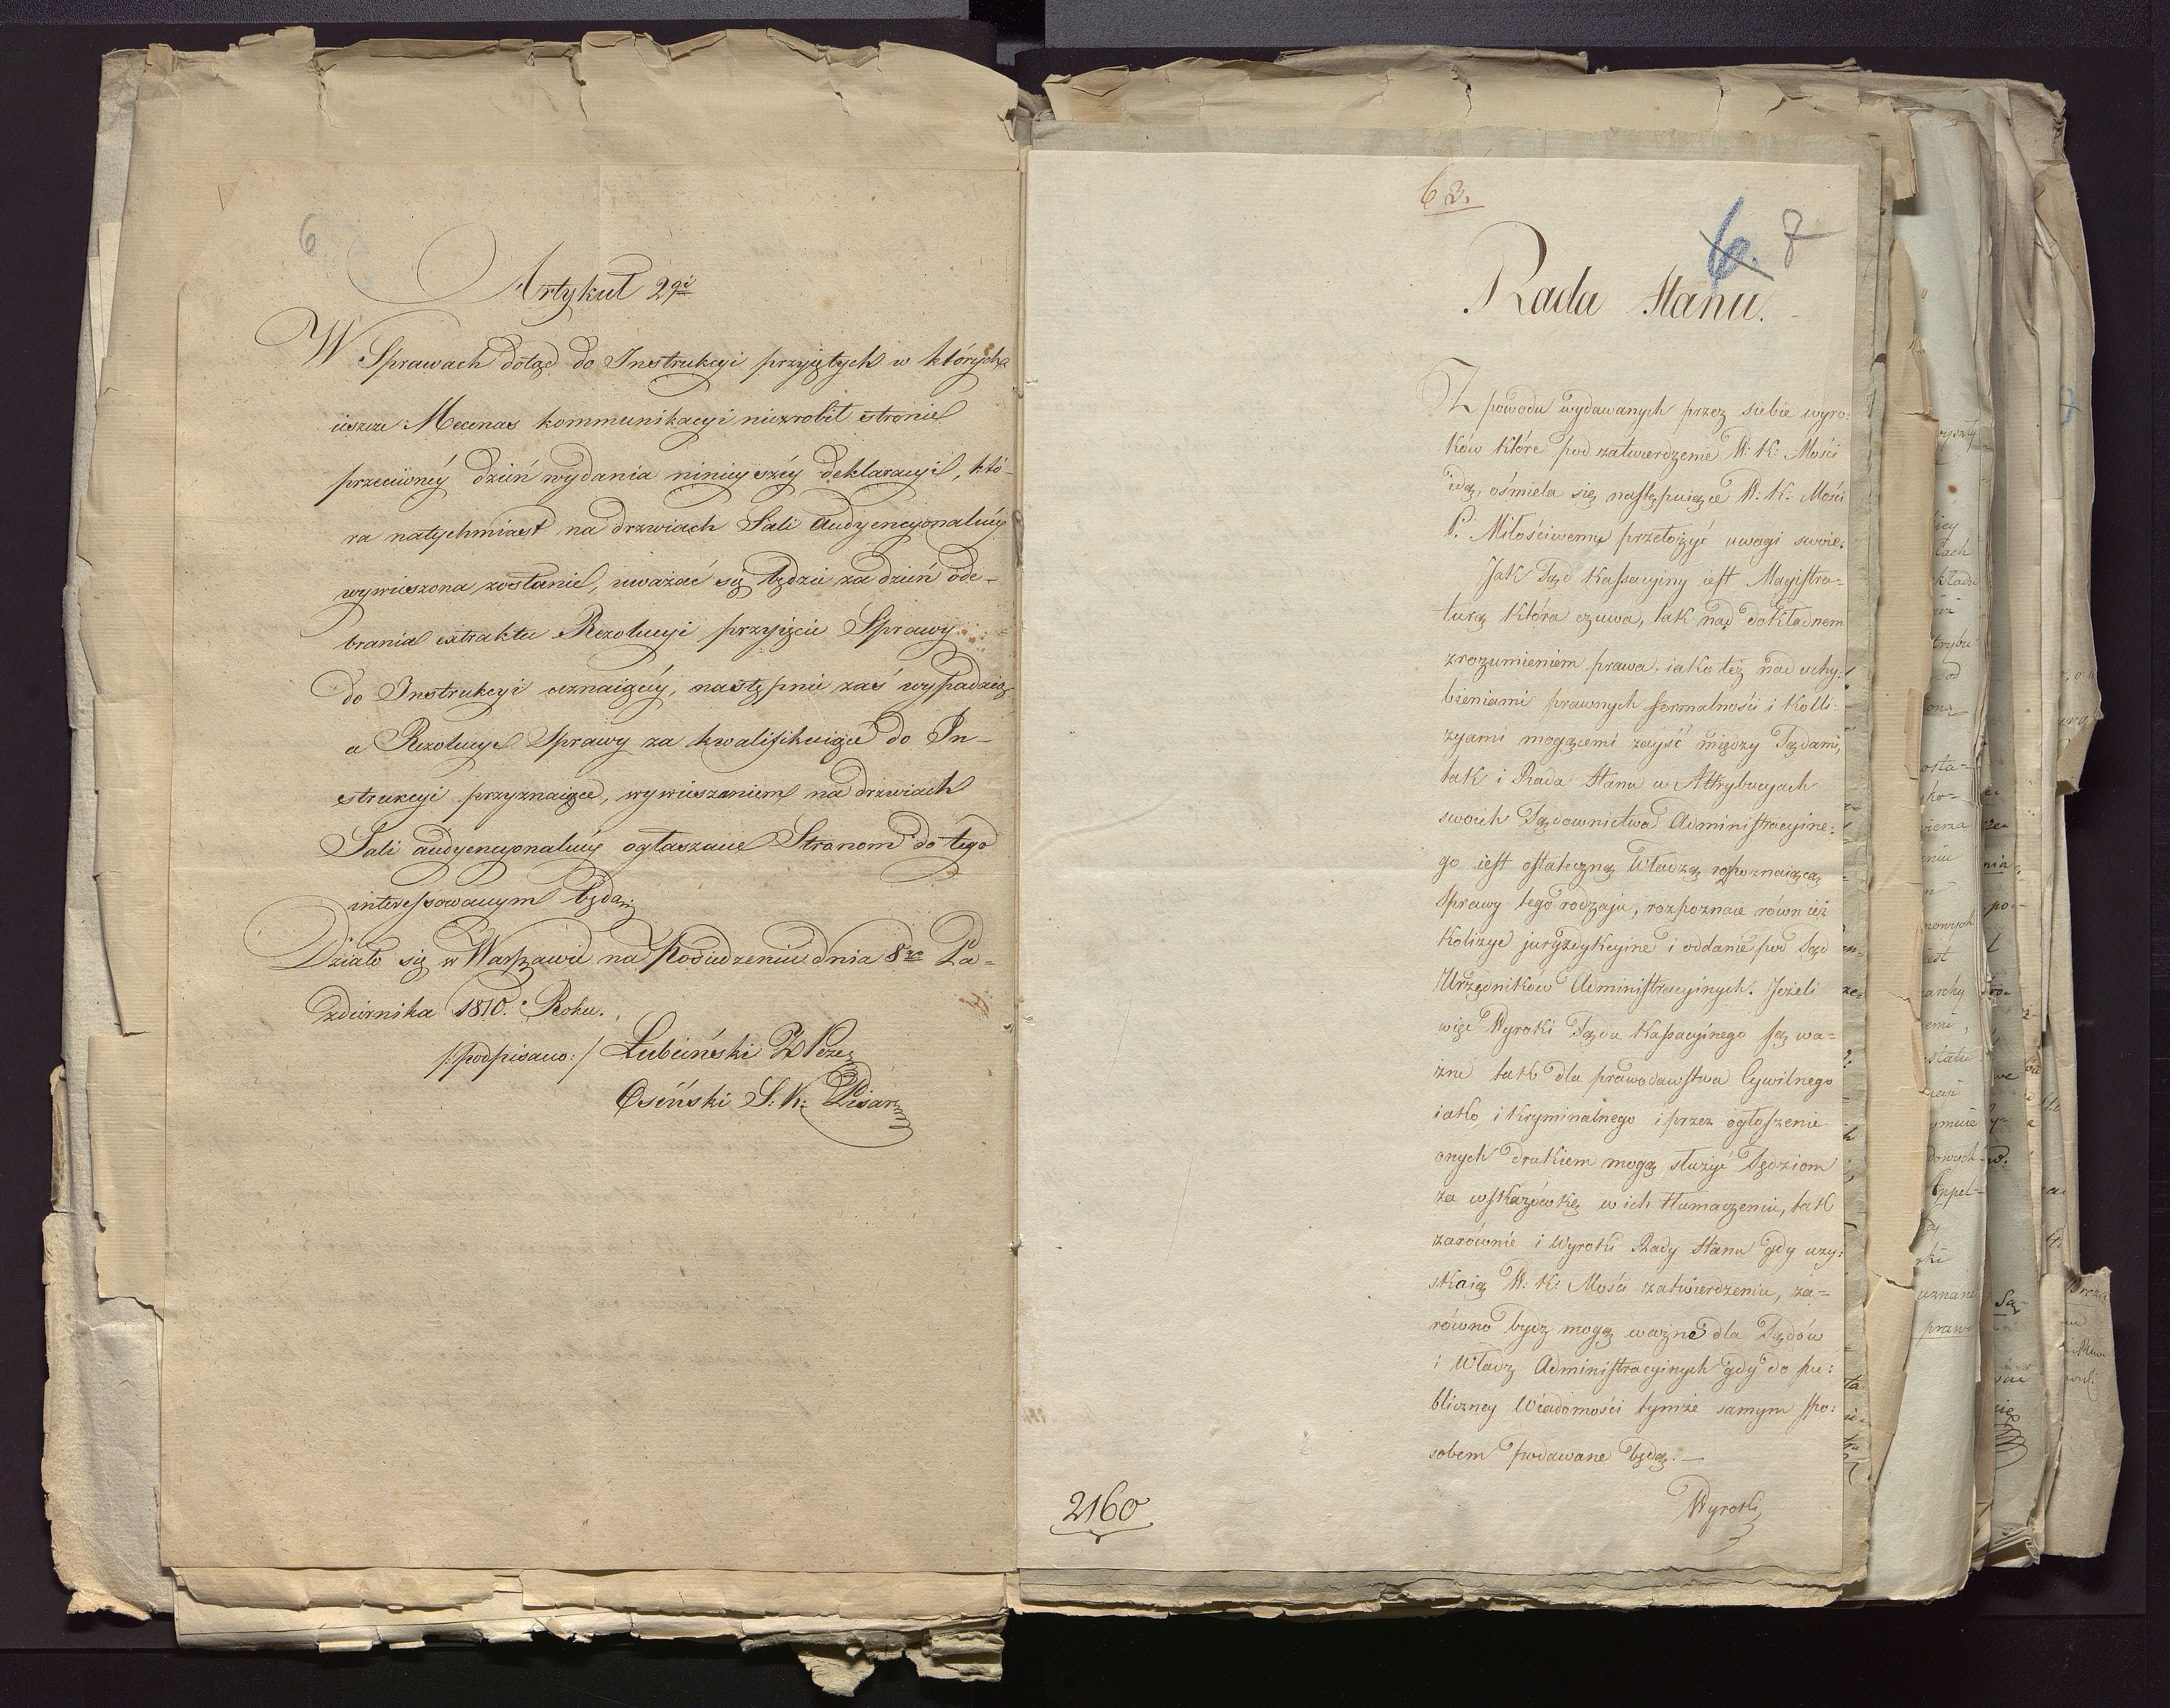 Artykuł 2gi
W Sprawach dotąd do Instrukcyi przyiętych w których
ieszcze Mecenas kommunikacyi niezrobił stronie
przeciwnéy dzień wydania ninieyszéy deklaracyi, któ-
ra natychmiast na drzwiach Sali Audyencyonalnéy
wywieszona zostanie, uważać się będzie za dzień ode-
brania extraktu Rezolucyi przyięcie Sprawy
do Instrukcyi uznaiącéy, następnie zaś wypadaią-
ce Rezolucye Sprawy za kwalifikuiące do In-
strukcyi przyznaiące, wywieszeniem na drzwiach
Sali audyencyonalnéy ogłaszane Stronom do tego
interessowanym będą.
Działo się w Warszawie na Posiedzeniu dnia 8go Pa-
zdziernika 1810.o Roku.
/:podpisano:/ Łubieński Z Preze
Osiński S: K: Pisarz
63.
6. 7
Rada Stanu.
Z powodu wydawanych przez siebie wyro:
ków które pod zatwierdzenie W: K: Mości
idą, ośmiela się następuiące W: K: Mości
P. Miłościwemu przełożyć uwagi swoie.
Jak Sąd Kassacyiny iest Magistra-
turą która czuwa, tak nad dokładnem
zrozumieniem prawa iako też nad uchy:
bieniami prawnych formalności i Kolli:
zyami mogącemi zayść między Sądami,
tak i Rada Stanu w Attrybucyach
swoich Sądownictwa Administracyine:
go iest ostateczną Władzą rozpoznaiącą
sprawy tego rodzaju, rozpoznaie również
Kolizye juryzdykcyine i oddanie pod Sąd
Urzędników Administracyinych. Jeżeli
więc Wyroki Sądu Kassacyinego są wa-
żne tak dla prawodawstwa Cywilnego
iako i Kryminalnego i przez ogłoszenie
onych drukiem mogą służyć Sędziom
za wskazówkę w ich tłumaczeniu, tak
zarównie i Wyroki Rady Stanu gdy uzy:
skaią W: K: Mości zatwierdzenie, za-
równo bydź mogą ważne dla Sądów
i Władz Administracyinych gdy do pu:
bliczney Wiadomości tymże samym spo:
sobem podawane będą. —
Wyroki
2160